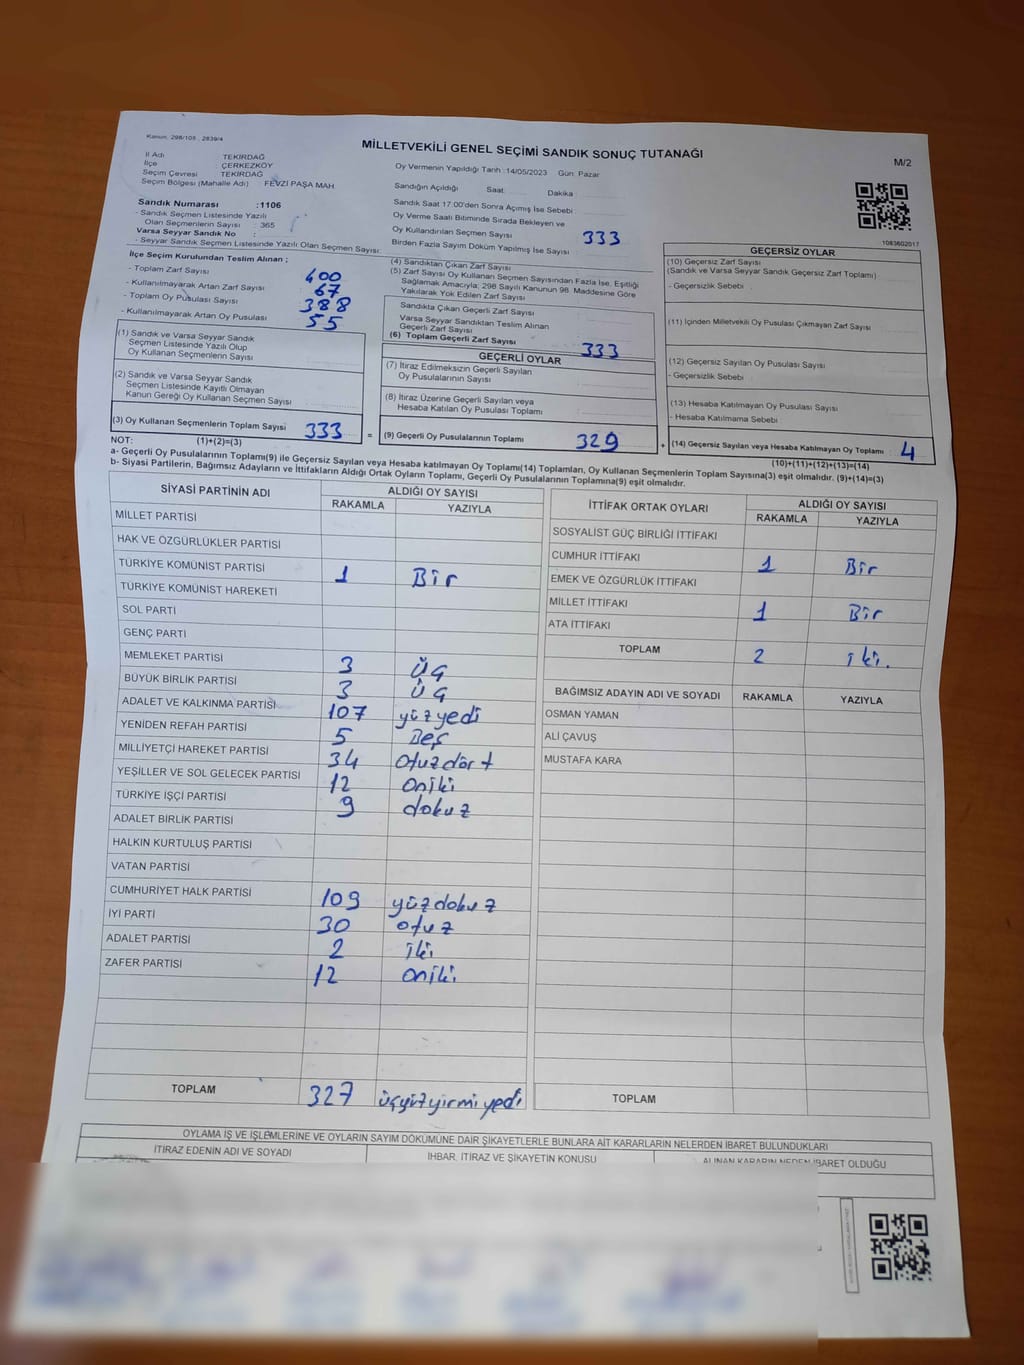 Kanun, 298/105 , 2839/4
MİLLETVEKİLİ GENEL SEÇİMİ SANDIK SONUÇ TUTANAĞI
M/2
İl Adı TEKİRDAĞ
İlçe : ÇERKEZKÖY
Seçim Çevresi TEKİRDAĞ
Seçim Bölgesi (Mahalle Adı) FEVZİ PAŞA MAH.
Oy Vermenin Yapıldığı Tarih :14/05/2023 Gün: Pazar
Sandığın Açıldığı Saat: Dakika :
Sandık Saat 17.00'den Sonra Açılmış İse Sebebi :
Oy Verme Saati Bitiminde Sırada Bekleyen ve
Oy Kullandırılan Seçmen Sayısı : 333
Birden Fazla Sayım Döküm Yapılmış İse Sayısı :
1083602017
Sandık Numarası :1106
- Sandık Seçmen Listesinde Yazılı
Olan Seçmenlerin Sayısı : 365
Varsa Seyyar Sandık No :
- Seyyar Sandık Seçmen Listesinde Yazılı Olan Seçmen Sayısı:
İlçe Seçim Kurulundan Teslim Alınan ;
- Toplam Zarf Sayısı 400
- Kullanılmayarak Artan Zarf Sayısı 67
- Toplam Oy Pusulası Sayısı 388
- Kullanılmayarak Artan Oy Pusulası 55
(1) Sandık ve Varsa Seyyar Sandık
Seçmen Listesinde Yazılı Olup
Oy Kullanan Seçmenlerin Sayısı
(2) Sandık ve Varsa Seyyar Sandık
Seçmen Listesinde Kayıtlı Olmayan
Kanun Gereği Oy Kullanan Seçmen Sayısı
(3) Oy Kullanan Seçmenlerin Toplam Sayısı 333
(4) Sandıktan Çıkan Zarf Sayısı
(5) Zarf Sayısı Oy Kullanan Seçmen Sayısından Fazla İse, Eşitliği
Sağlamak Amacıyla; 298 Sayılı Kanunun 98. Maddesine Göre
Yakılarak Yok Edilen Zarf Sayısı
Sandıkta Çıkan Geçerli Zarf Sayısı
Varsa Seyyar Sandıktan Teslim Alınan
Geçerli Zarf Sayısı
(6) Toplam Geçerli Zarf Sayısı 333
GEÇERLİ OYLAR
(7) İtiraz Edilmeksizin Geçerli Sayılan
Oy Pusulalarının Sayısı
(8) İtiraz Üzerine Geçerli Sayılan veya
Hesaba Katılan Oy Pusulası Toplamı
= (9) Geçerli Oy Pusulalarının Toplamı 329 +
GEÇERSİZ OYLAR
(10) Geçersiz Zarf Sayısı
(Sandık ve Varsa Seyyar Sandık Geçersiz Zarf Toplamı)
- Geçersizlik Sebebi :
(11) İçinden Milletvekili Oy Pusulası Çıkmayan Zarf Sayısı
(12) Geçersiz Sayılan Oy Pusulası Sayısı
- Geçersizlik Sebebi :
(13) Hesaba Katılmayan Oy Pusulası Sayısı
- Hesaba Katılmama Sebebi :
(14) Geçersiz Sayılan veya Hesaba Katılmayan Oy Toplamı : 4
NOT: (1)+(2)=(3) (10)+(11)+(12)+(13)=(14)
a- Geçerli Oy Pusulalarının Toplamı(9) ile Geçersiz Sayılan veya Hesaba katılmayan Oy Toplamı(14) Toplamları, Oy Kullanan Seçmenlerin Toplam Sayısına(3) eşit olmalıdır. (9)+(14)=(3)
b- Siyasi Partilerin, Bağımsız Adayların ve İttifakların Aldığı Ortak Oyların Toplamı, Geçerli Oy Pusulalarının Toplamına(9) eşit olmalıdır.
SİYASİ PARTİNİN ADI ALDIĞI OY SAYISI
RAKAMLA YAZIYLA
MİLLET PARTİSİ
HAK VE ÖZGÜRLÜKLER PARTİSİ
TÜRKİYE KOMÜNİST PARTİSİ 1 Bir
TÜRKİYE KOMÜNİST HAREKETİ
SOL PARTİ
GENÇ PARTİ
MEMLEKET PARTİSİ 3 Üç
BÜYÜK BİRLİK PARTİSİ 3 Üç
ADALET VE KALKINMA PARTİSİ 107 yüzyedi
YENİDEN REFAH PARTİSİ 5 Beş
MİLLİYETÇİ HAREKET PARTİSİ 34 otuzdört
YEŞİLLER VE SOL GELECEK PARTİSİ 12 oniki
TÜRKİYE İŞÇİ PARTİSİ 9 dokuz
ADALET BİRLİK PARTİSİ
HALKIN KURTULUŞ PARTİSİ
VATAN PARTİSİ
CUMHURİYET HALK PARTİSİ 109 yüzdokuz
İYİ PARTİ 30 otuz
ADALET PARTİSİ 2 iki
ZAFER PARTİSİ 12 oniki
TOPLAM 327 üçyüzyirmiyedi
İTTİFAK ORTAK OYLARI ALDIĞI OY SAYISI
RAKAMLA YAZIYLA
SOSYALİST GÜÇ BİRLİĞİ İTTİFAKI
CUMHUR İTTİFAKI 1 Bir
EMEK VE ÖZGÜRLÜK İTTİFAKI
MİLLET İTTİFAKI 1 Bir
ATA İTTİFAKI
TOPLAM 2 iki.
BAĞIMSIZ ADAYIN ADI VE SOYADI RAKAMLA YAZIYLA
OSMAN YAMAN
ALİ ÇAVUŞ
MUSTAFA KARA
TOPLAM
OYLAMA İŞ VE İŞLEMLERİNE VE OYLARIN SAYIM DÖKÜMÜNE DAİR ŞİKAYETLERLE BUNLARA AİT KARARLARIN NELERDEN İBARET BULUNDUKLARI
İTİRAZ EDENİN ADI VE SOYADI İHBAR, İTİRAZ VE ŞİKAYETİN KONUSU ALINAN KARARIN NEDEN İBARET OLDUĞU